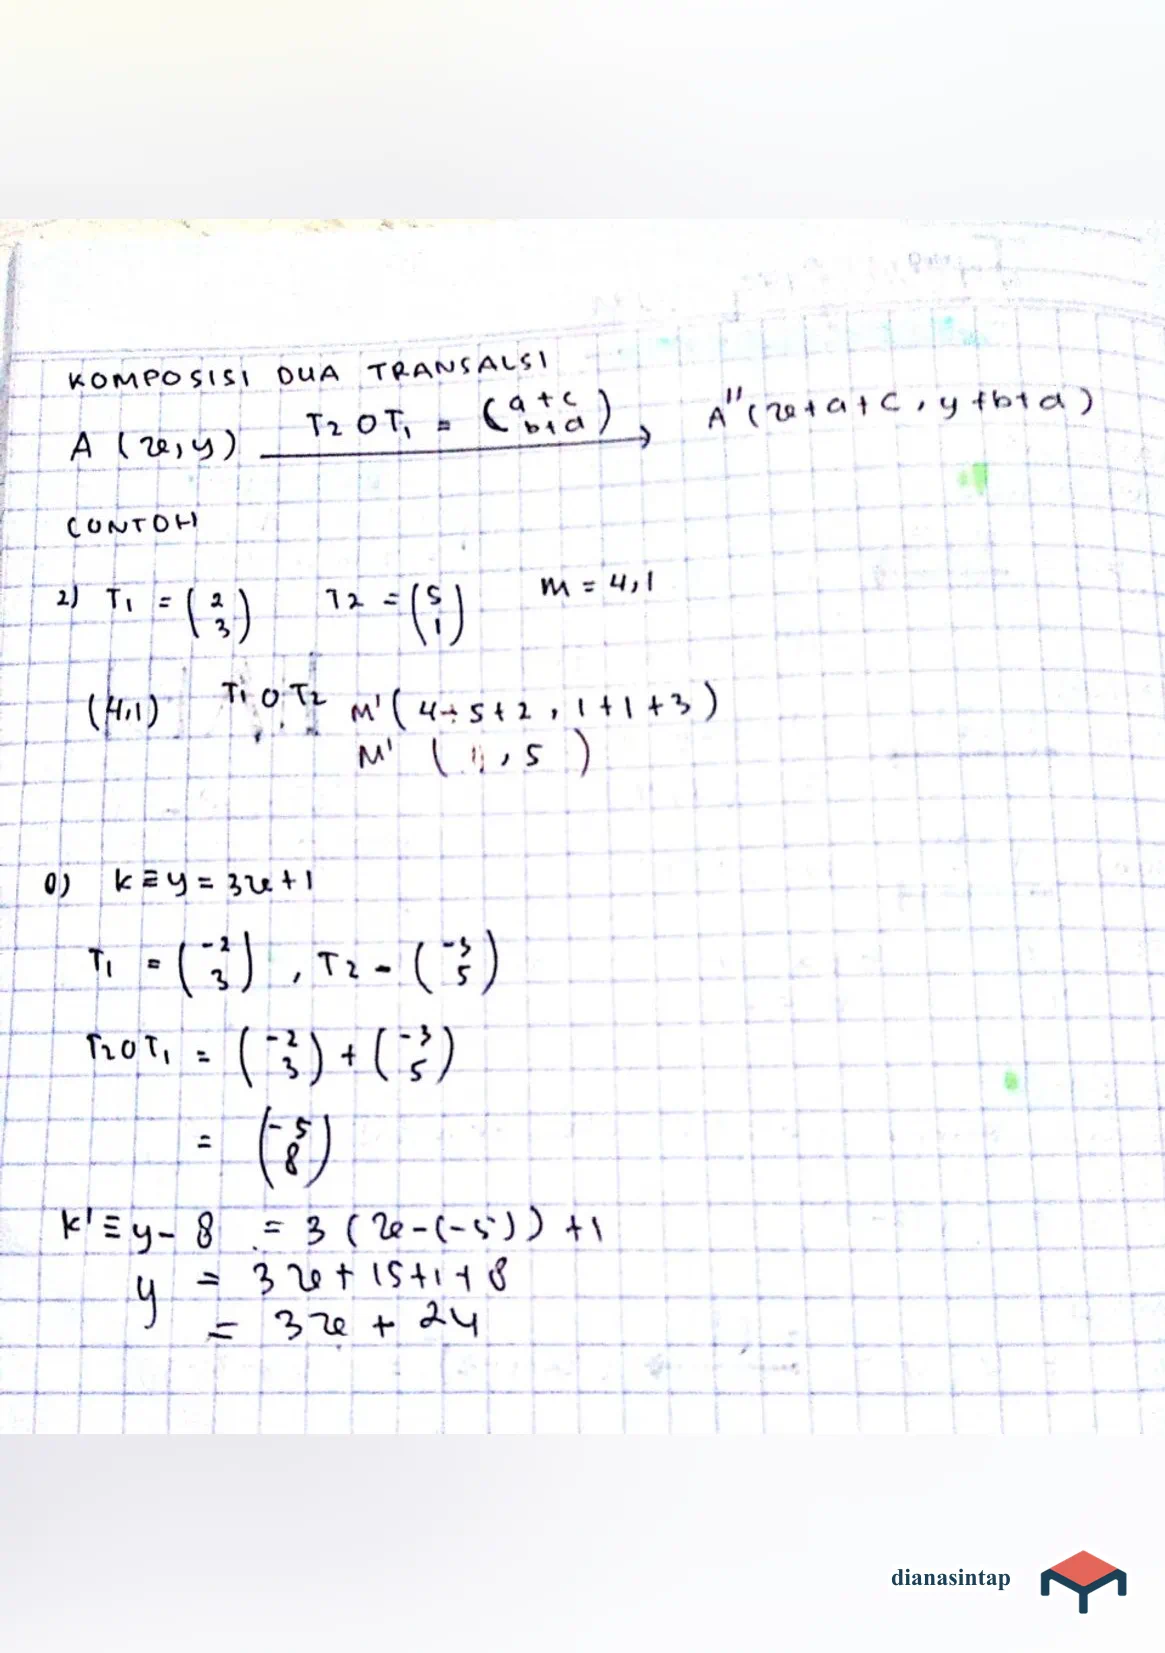 KOMPOSISI DUA TRANSALSI
A (x, y) T2 O T1 = (a + c b + d) A" (x + a + c, y + b + d)
CONTOH
2) T1 = (2 3) T2 = (5 1) M = 4,1
(4,1) T1 O T2 M' (4 + 5 + 2, 1 + 1 + 3)
M' (11, 5)
0) k ≡ y = 3x + 1
T1 = (-2 3), T2 - (-3 5)
T2 O T1 = (-2 3) + (-3 5)
= (-5 8)
k' ≡ y - 8 = 3 (x - (-5)) + 1
y = 3x + 15 + 1 + 8
= 3x + 24
dianasintap